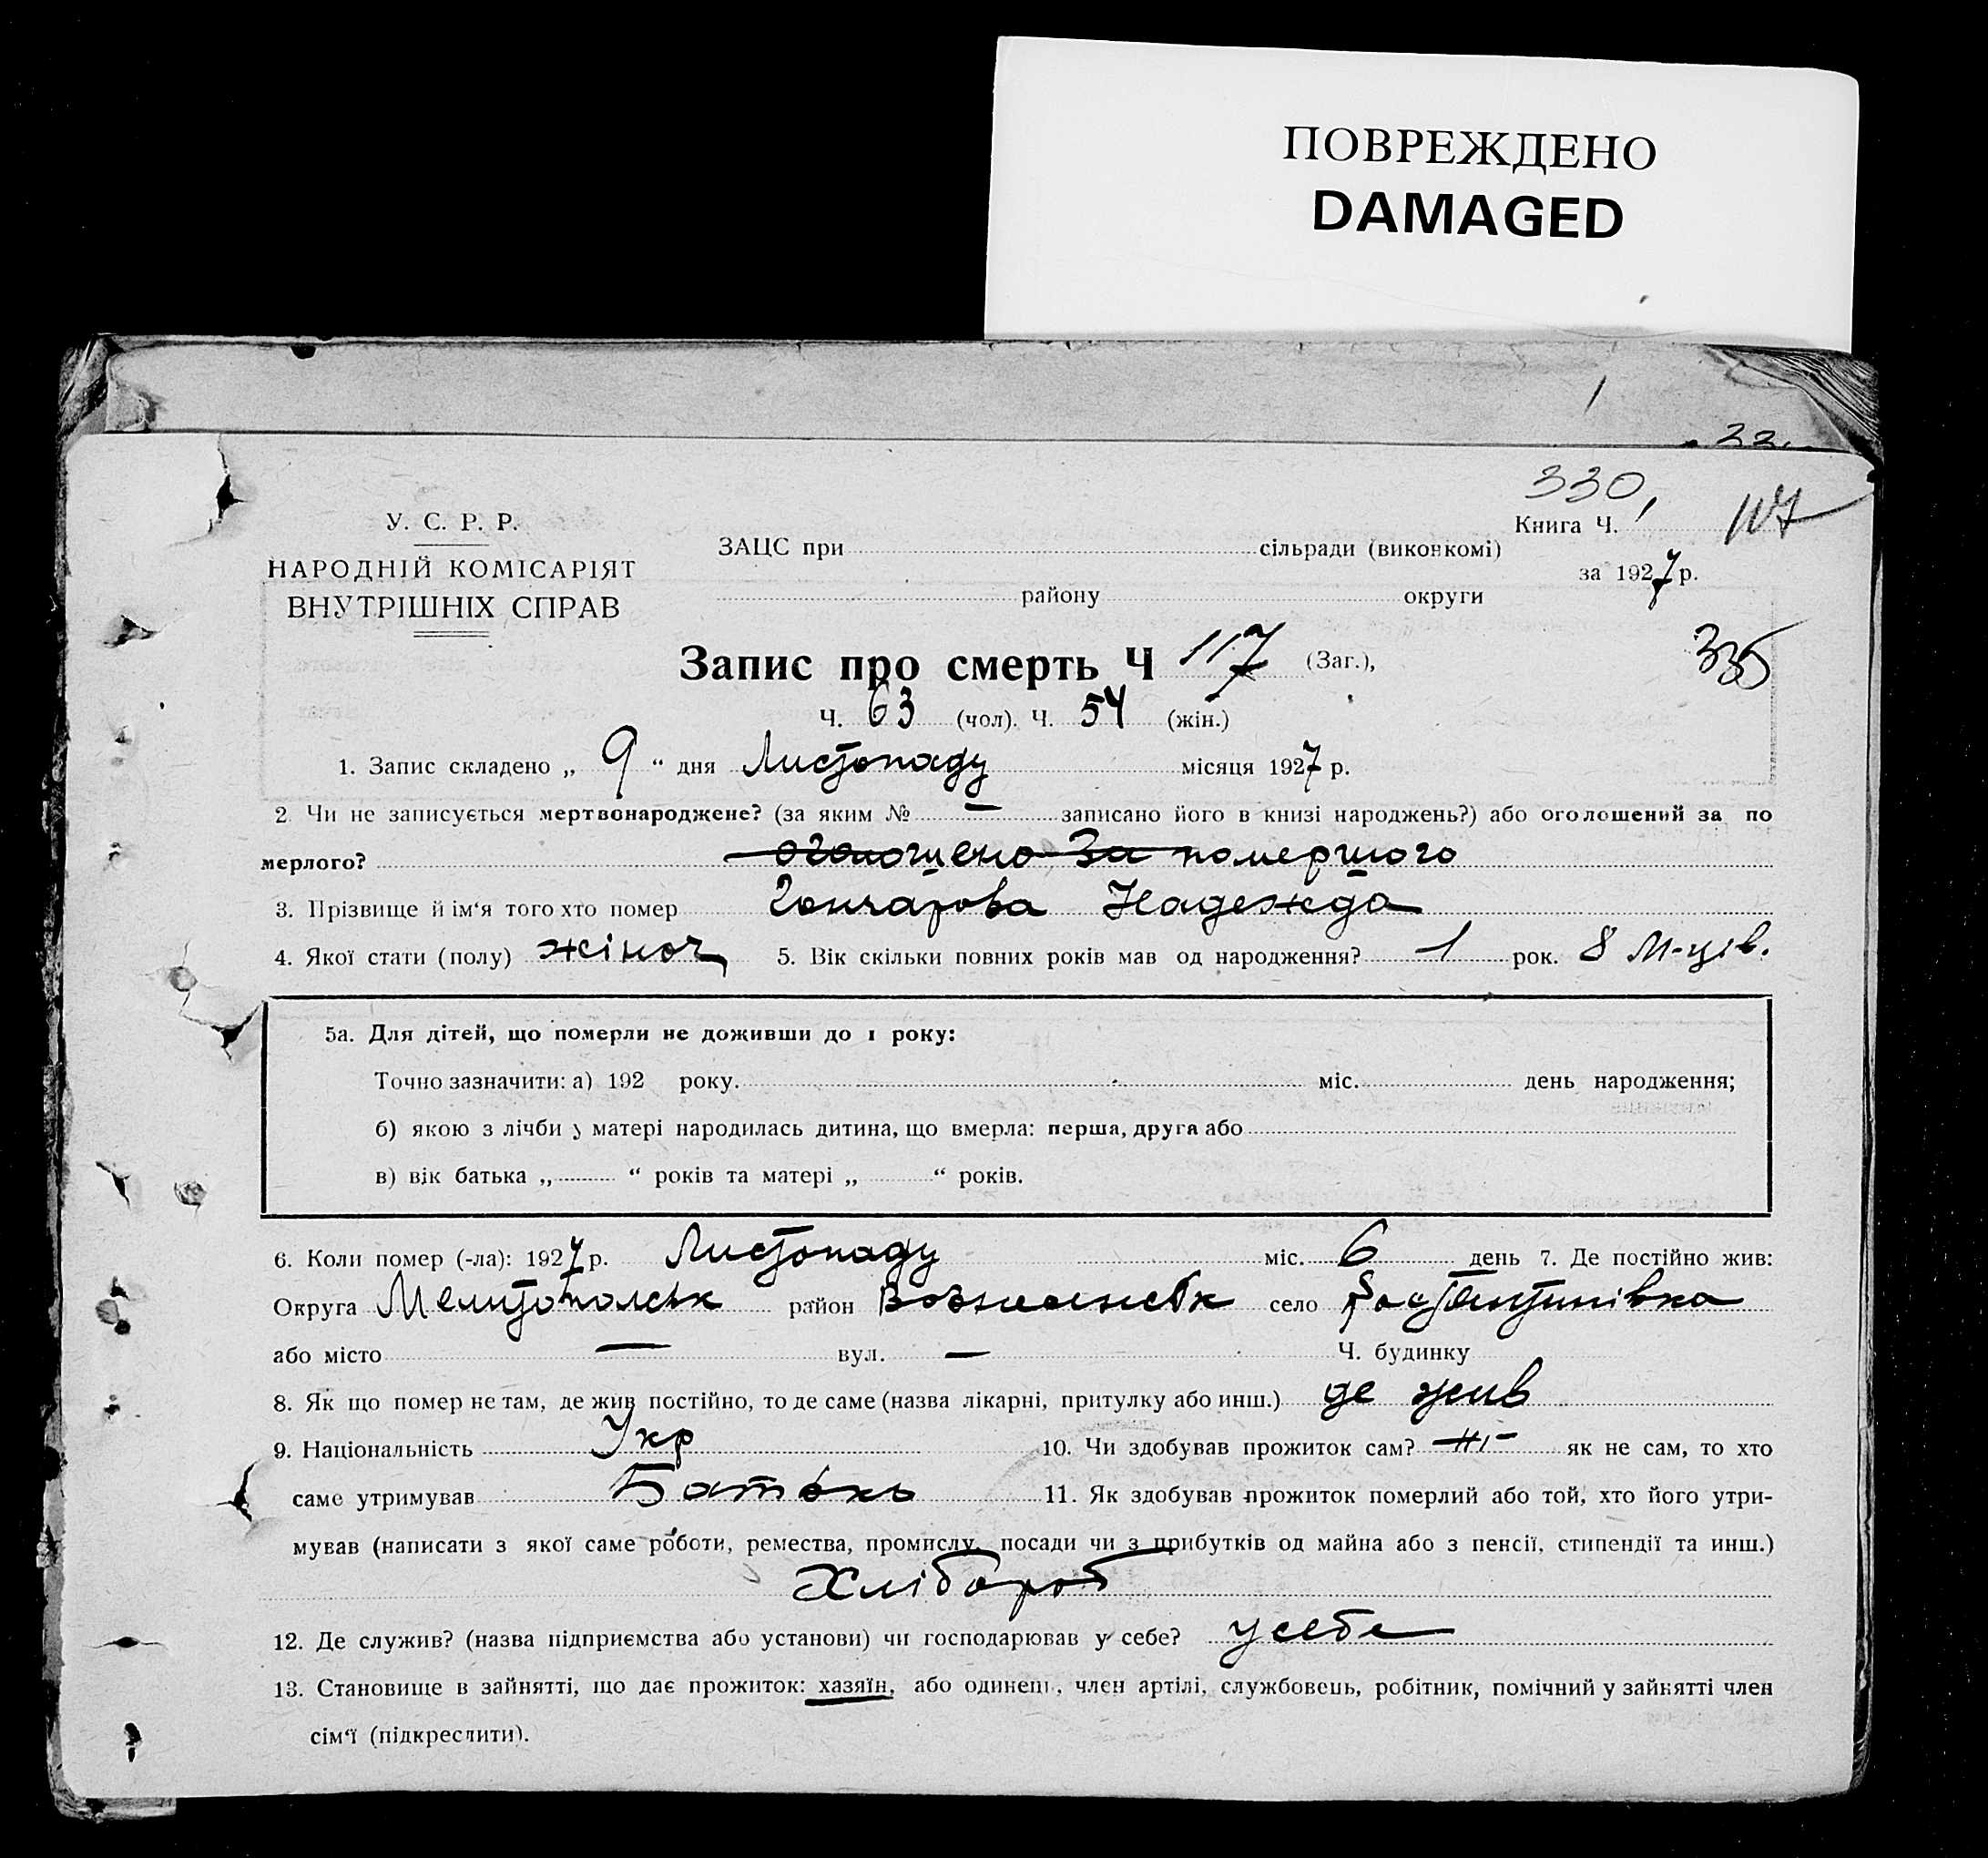 ПОВРЕЖДЕНО
DAMAGED
1
22.
330,
117
У. С. Р. Р.
НАРОДНІЙ КОМІСАРІЯТ
ВНУТРІШНІХ СПРАВ
Книга Ч.
ЗАЦС при сільради (виконкомі)
за 1927 р.
району округи
335
Запис про смерть Ч 117 (Заг.),
Ч. 63 (чол). Ч. 54 (жін.)
1. Запис складено „ 9 “ дня Листопаду місяця 1927 р.
2 Чи не записується мертвонароджене? (за яким № — записано його в книзі народжень?) або оголошений за по
мерлого? оголошено за помершого
3. Прізвище й ім‘я того хто помер Гончарова Надежда
4. Якої стати (полу) жіноч 5. Вік скільки повних років мав од народження? 1 рок. 8 м-ців.
5а. Для дітей, що померли не доживши до 1 року:
Точно зазначити: а) 192 року. міс. день народження;
б) якою з лічби у матері народилась дитина, що вмерла: перша, друга або
в) вік батька „ “ років та матері „ “ років.
6. Коли помер (-ла): 1927 р. Листопаду міс. 6 день 7. Де постійно жив:
Округа Мелитопольськ район Вознесенськ село
або місто — вул. — Ч. будинку
8. Як що помер не там, де жив постійно, то де саме (назва лікарні, притулку або инш.) де жив
9. Національність Укр 10. Чи здобував прожиток сам? ні як не сам, то хто
саме утримував Батько 11. Як здобував прожиток померлий або той, хто його утри-
мував (написати з якої саме роботи, ремества, промислу, посади чи з прибутків од майна або з пенсії, стипендії та инш.)
Хлібороб
12. Де служив? (назва підприємства або установи) чи господарював у себе? у себе
13. Становище в зайнятті, що дає прожиток: хазяїн, або одинець, член артілі, службовець, робітник, помічний у зайнятті член
сім‘ї (підкреслити).